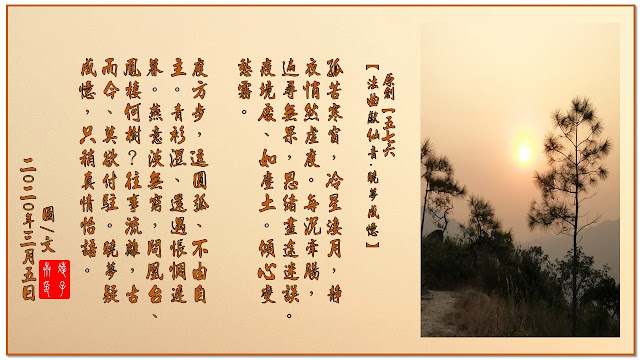 原創 一五七六
【法曲獻仙音·曉夢成憶】
孤苦寒窗,冷星淒月,靜
夜悄然虛度。每況牽腸,
追尋無果,思緒盡途迷誤。
夜境廢、如塵土。傾心變
愁霧。
度方步,逗圓弧、不由自
主。青衫濕、還遇悵惘邊
暮。燕意淡無窮,閒鳳台、
鳳樓何樹?往事流離,古
而今、莫欲付駐。曉夢疑
成憶,只稍真情恰語。
圖/文
二〇二〇年三月五日